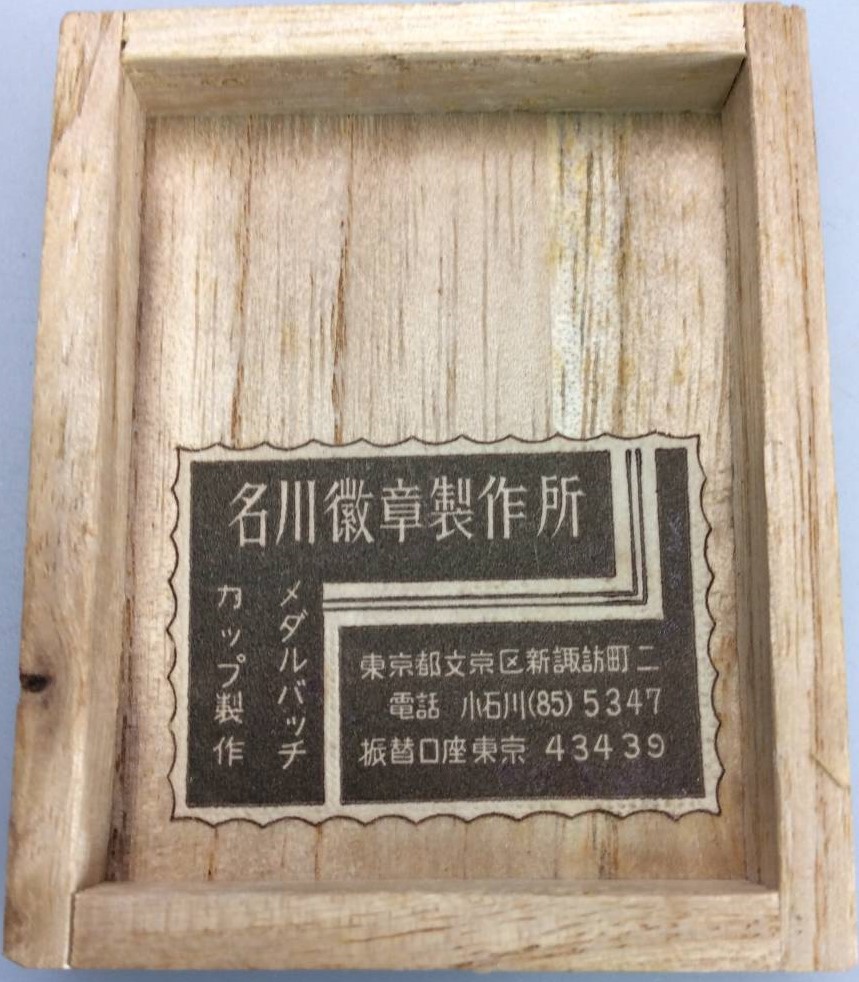 名川徽章製作所
メダルバッチ
カップ製作
東京都文京区新諏訪町二
電話 小石川(85)5347
振替口座東京 43439